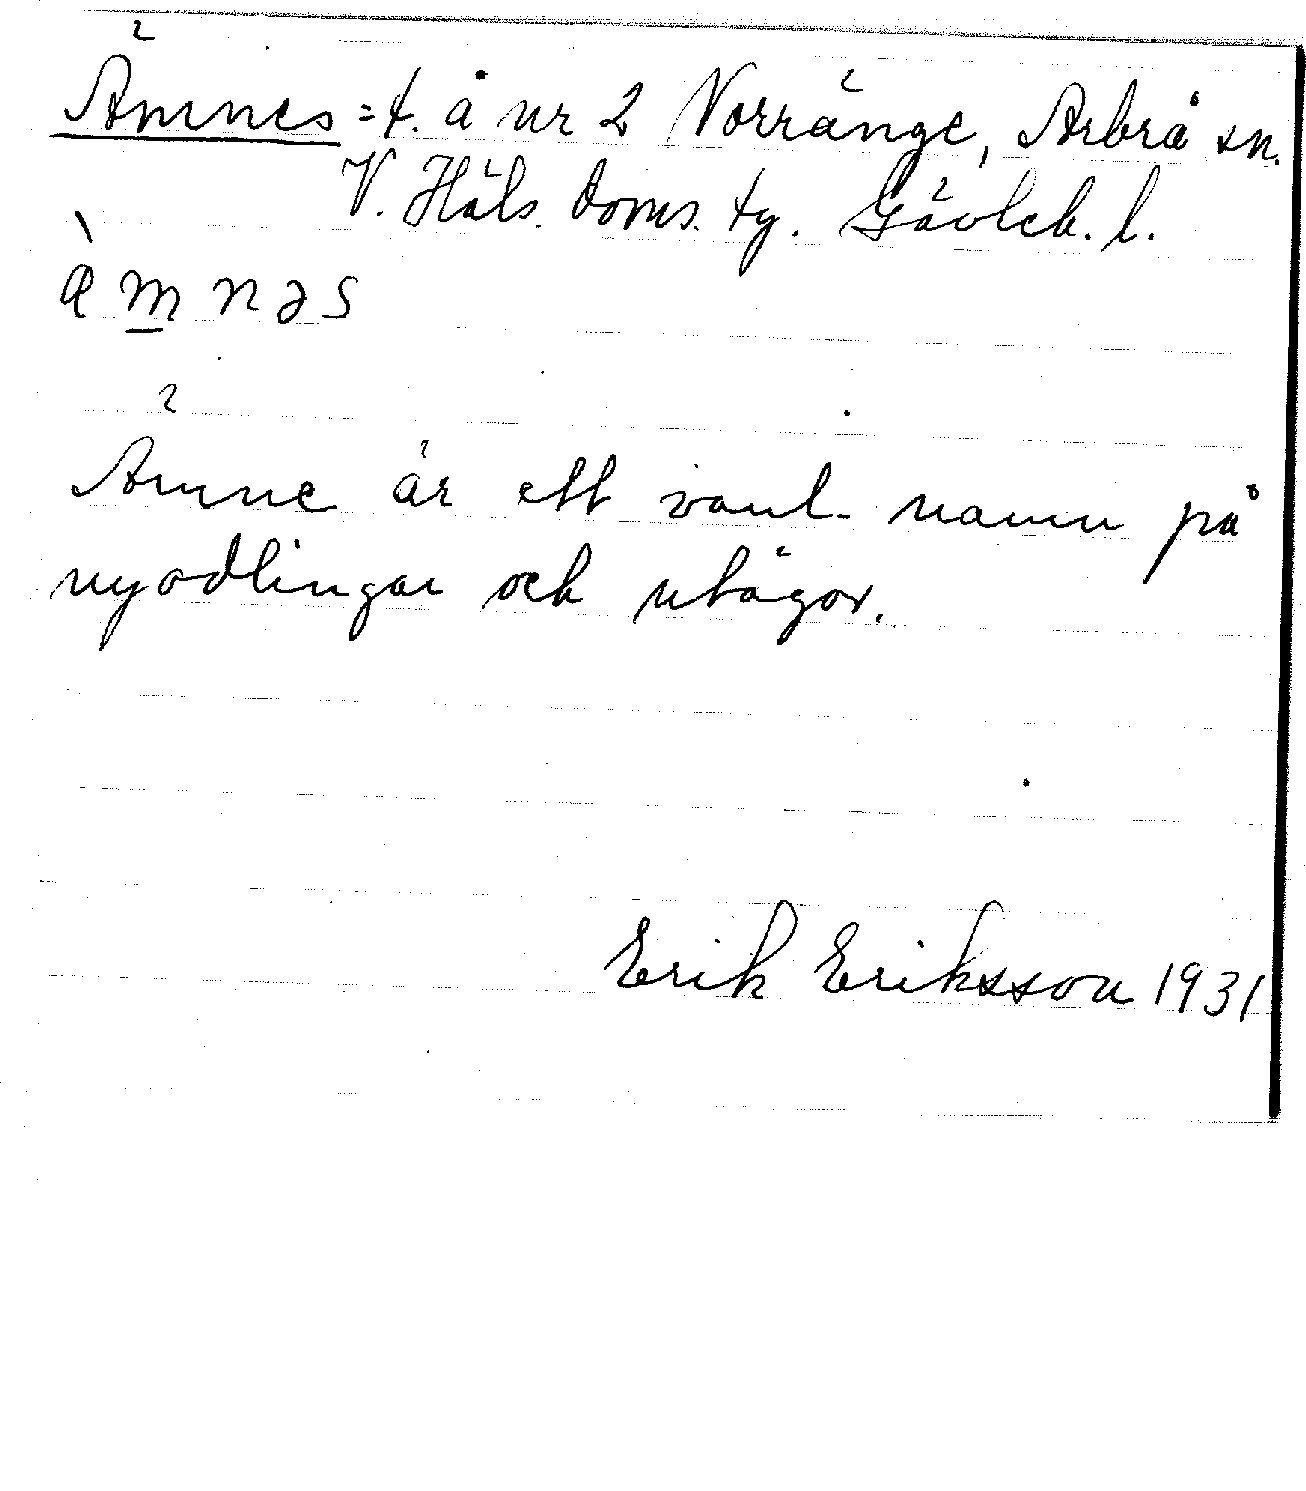 Ämnes = t. å nr 2 Norränge, Arbrå sn.
V. Häls. doms. tg. Gävleb. l.
æ̀m̲nəs
Ämne är ett vanl. namn på
nyodlingar och utägor.
Erik Eriksson 1931